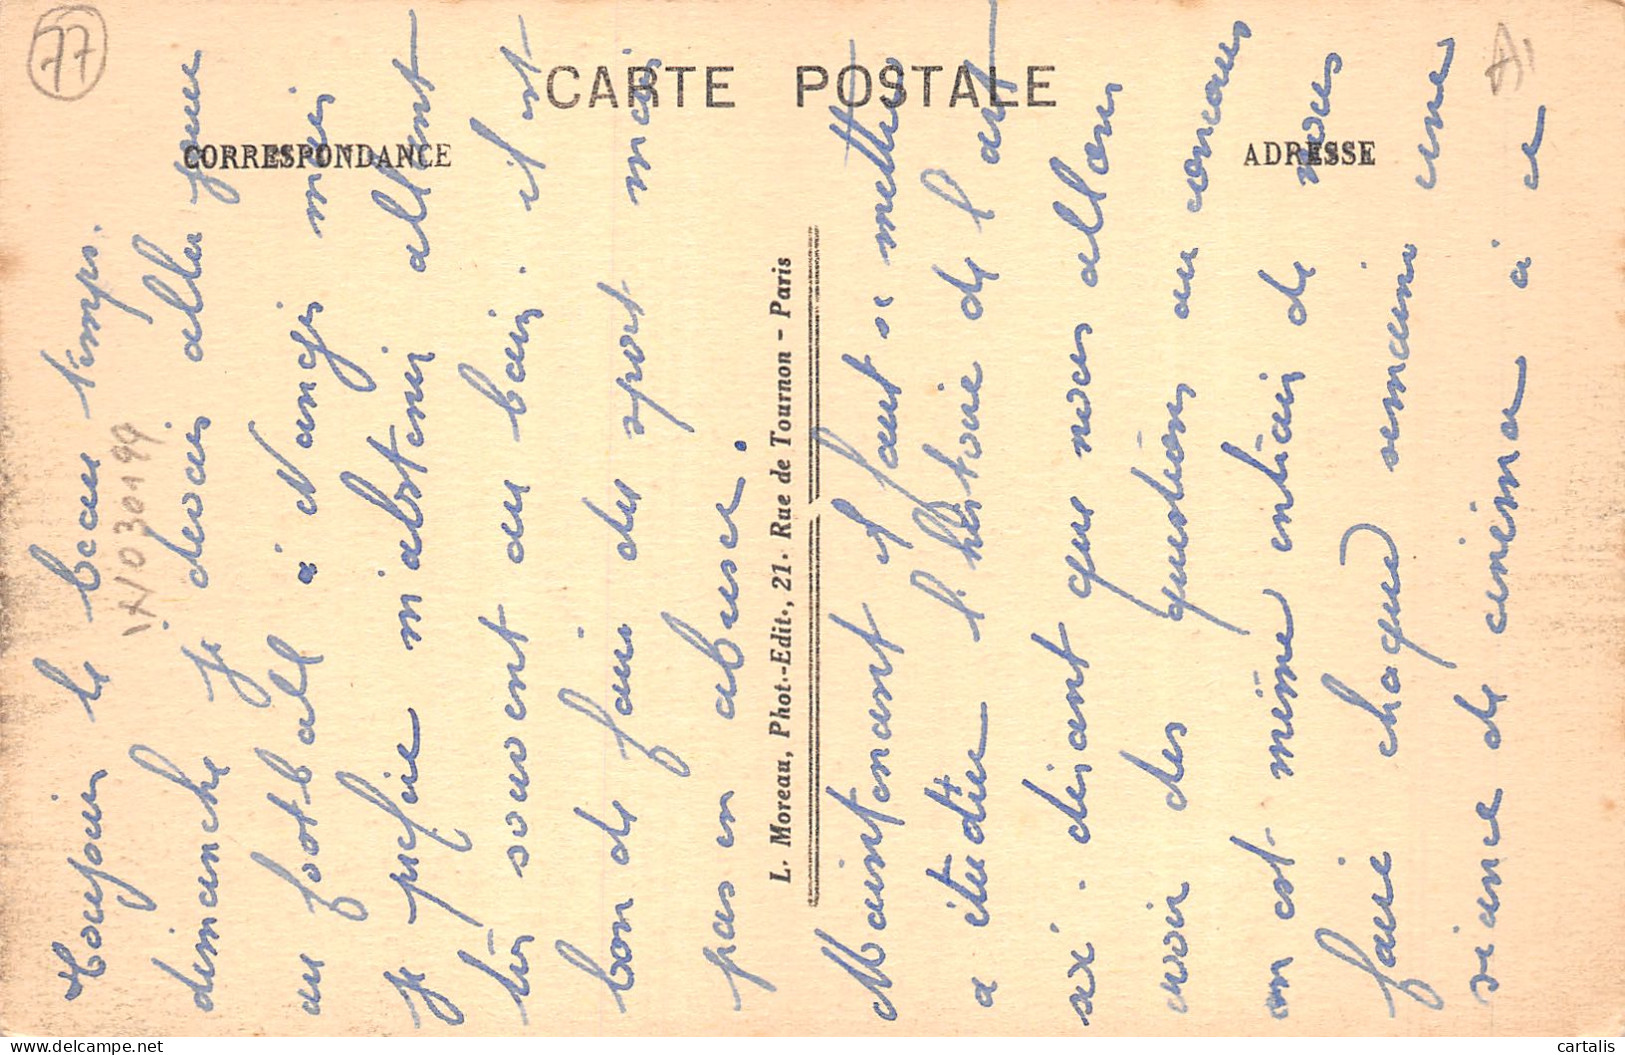 77
A1
CARTE POSTALE
CORRESPONDANCE
ADRESSE
L. Moreau, Phot.-Edit., 21. Rue de Tournon - Paris
Toujours le beau temps.
dimanche je devais aller jouer
au foot-ball à Nangis mais
je préfère m'abstenir allant
très souvent au bain, il est
bon de faire du sport mais
pas en abuser.
Maintenant il faut se mettre
a étudier l'histoire de l'art
soi-disant que nous allons
avoir des questions au concours
on est même entrain de nous
faire chaque semaine une
séance de cinéma à ce
N030199
cartalis
delcampe.net